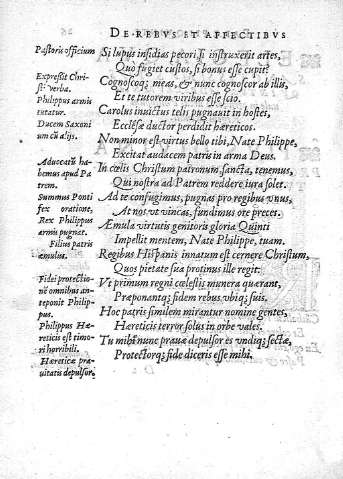 DE REBVS ET AFFECTIBVS
Pastoris officium
Si lupus insidias pecori si instruxerit artes,
Quò fugiet custos, si bonus esse cupit?
Expressit Chri-
sti verba.
Cognoscoq; meas, & nunc cognoscor ab illis,
Philippus armis
tutatur.
Et te tutorem viribus esse scio.
Carolus inuictus telis pugnauit in hostes,
Ducem Saxoni
um cū alijs.
Ecclesæ ductor perdidit hæreticos.
Non minor est virtus bello tibi, Nate Philippe,
Excitat audacem patris in arma Deus.
Aduocatū ha-
bemus apud Pa
trem.
In cœlis Christum patronum, sancta, tenemus,
Qui nostra ad Patrem reddere iura solet.
Summus Ponti
fex oratione,
Rex Philippus
armis pugnat.
Ad te confugimus, pugnas pro regibus vnus,
At nos vt vincas, fundimus ore preces.
Filius patris
æmulus.
Æmula virtutis genitoris gloria Quinti
Impellit mentem, Nate Philippe, tuam.
Regibus Hispanis innatum est cernere Christum,
Quos pietate sua protinus ille regit:
Fidei protectio-
nē omnibus an-
teponit Philip-
pus.
Vt primum regni cœlestis munera quærant,
Præponantq; fidem rebus vbiq; suis.
Hoc patris similem mirantur nomine gentes,
Philippus Hæ-
reticis est timo-
ri horribili.
Hæreticis terror solus in orbe vales.
Hæreticæ pra-
uitatis depulsor.
Tu mihi nunc prauæ depulsor es vndiq; sectæ,
Protectorq; fide diceris esse mihi.